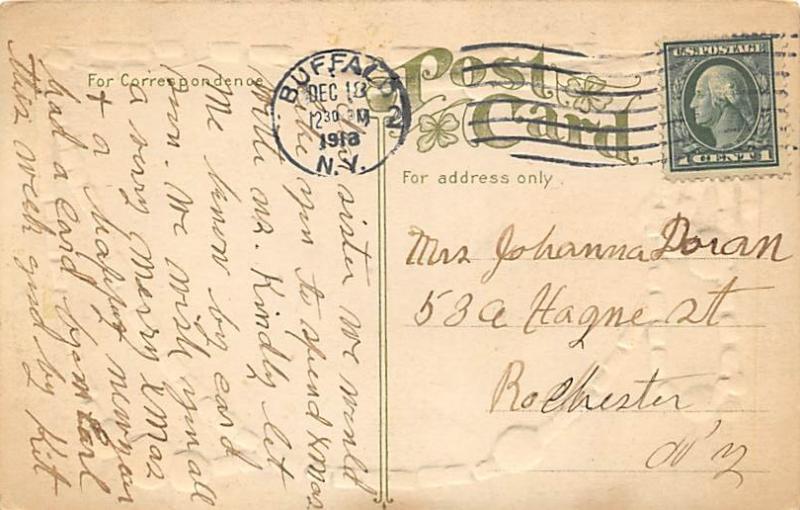 Post
Card
For Correspondence
For address only
BUFFALO
DEC 18
12 30 PM
1918
N.Y.
2
U.S. POSTAGE
1 CENT 1
sister we would
like you to spend Xmas
with us. Kindly let
me know by card
soon. We wish you all
a verry Merry Xmas
+ a happy new year
had a card from Earl
this week good by Kit
Mrs Johanna Doran
53 a Hagne st
Rochester
N'y